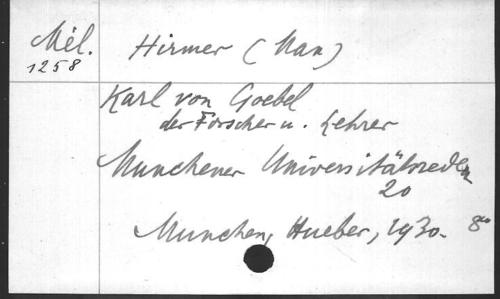 Mél.
1258
Hirmer (Max)
Karl von Goebel
der Forscher u. Lehrer
Munchener Universitätsreden
20
Munchen, Hueber, 1930. 8°